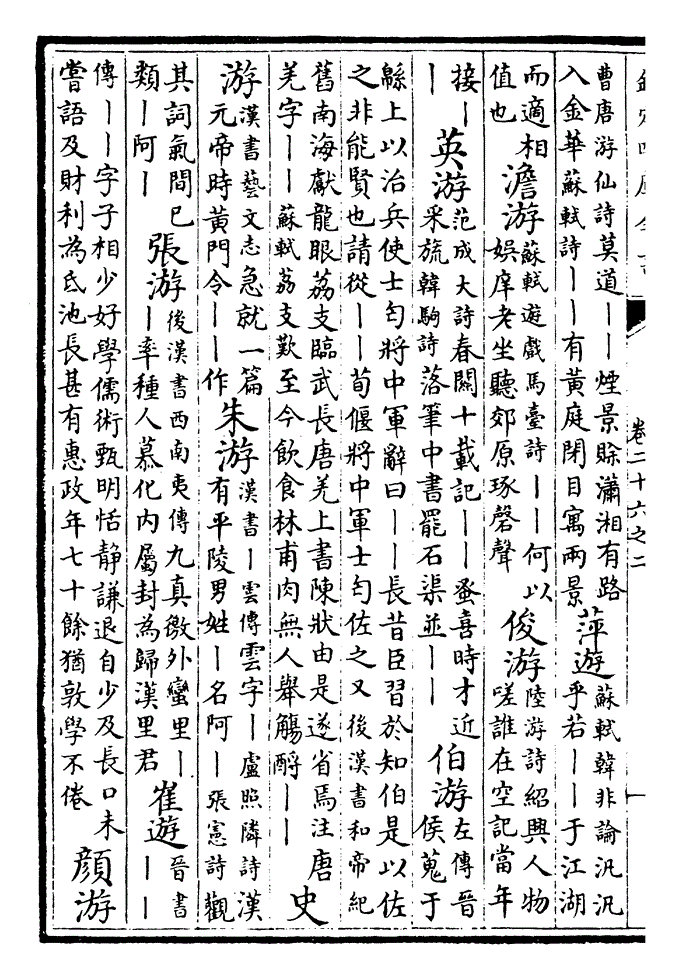 卷二十六之二
曹唐游仙詩莫道||煙景賒瀟湘有路
入金華蘇軾詩||有黃庭閉目寓兩景
萍遊
蘇軾韓非論汎汎
乎若||于江湖
而適相
值也
澹游
蘇軾遊戲馬臺詩||何以
娛庠老坐聽郊原琢磬聲
俊游
陸游詩紹興人物
嗟誰在空記當年
接|
|
英游
范成大詩春闗十載記||蚤喜時才近
采旒韓駒詩落筆中書罷石渠並||
伯游
左傳晉
侯蒐于
緜上以治兵使士匄將中軍辭曰||長昔臣習於知伯是以佐
之非能賢也請從||荀偃將中軍士匄佐之又後漢書和帝紀
舊南海獻龍眼荔支臨武長唐羌上書陳狀由是遂省焉注唐
羌字||蘇軾荔支歎至今飲食林甫肉無人舉觴酹||
史
游
漢書藝文志急就一篇
元帝時黃門令||作
朱游
漢書|雲傳雲字|盧照隣詩漢
有平陵男姓|名阿|張憲詩觀
其詞氣間已
類|阿|
張游
後漢書西南夷傳九真徼外蠻里|
|率種人慕化内屬封為歸漢里君
崔遊
晉書
||
傳||字子相少好學儒術甄明恬静謙退自少及長口未
嘗語及財利為氐池長甚有惠政年七十餘猶敦學不倦
顔游